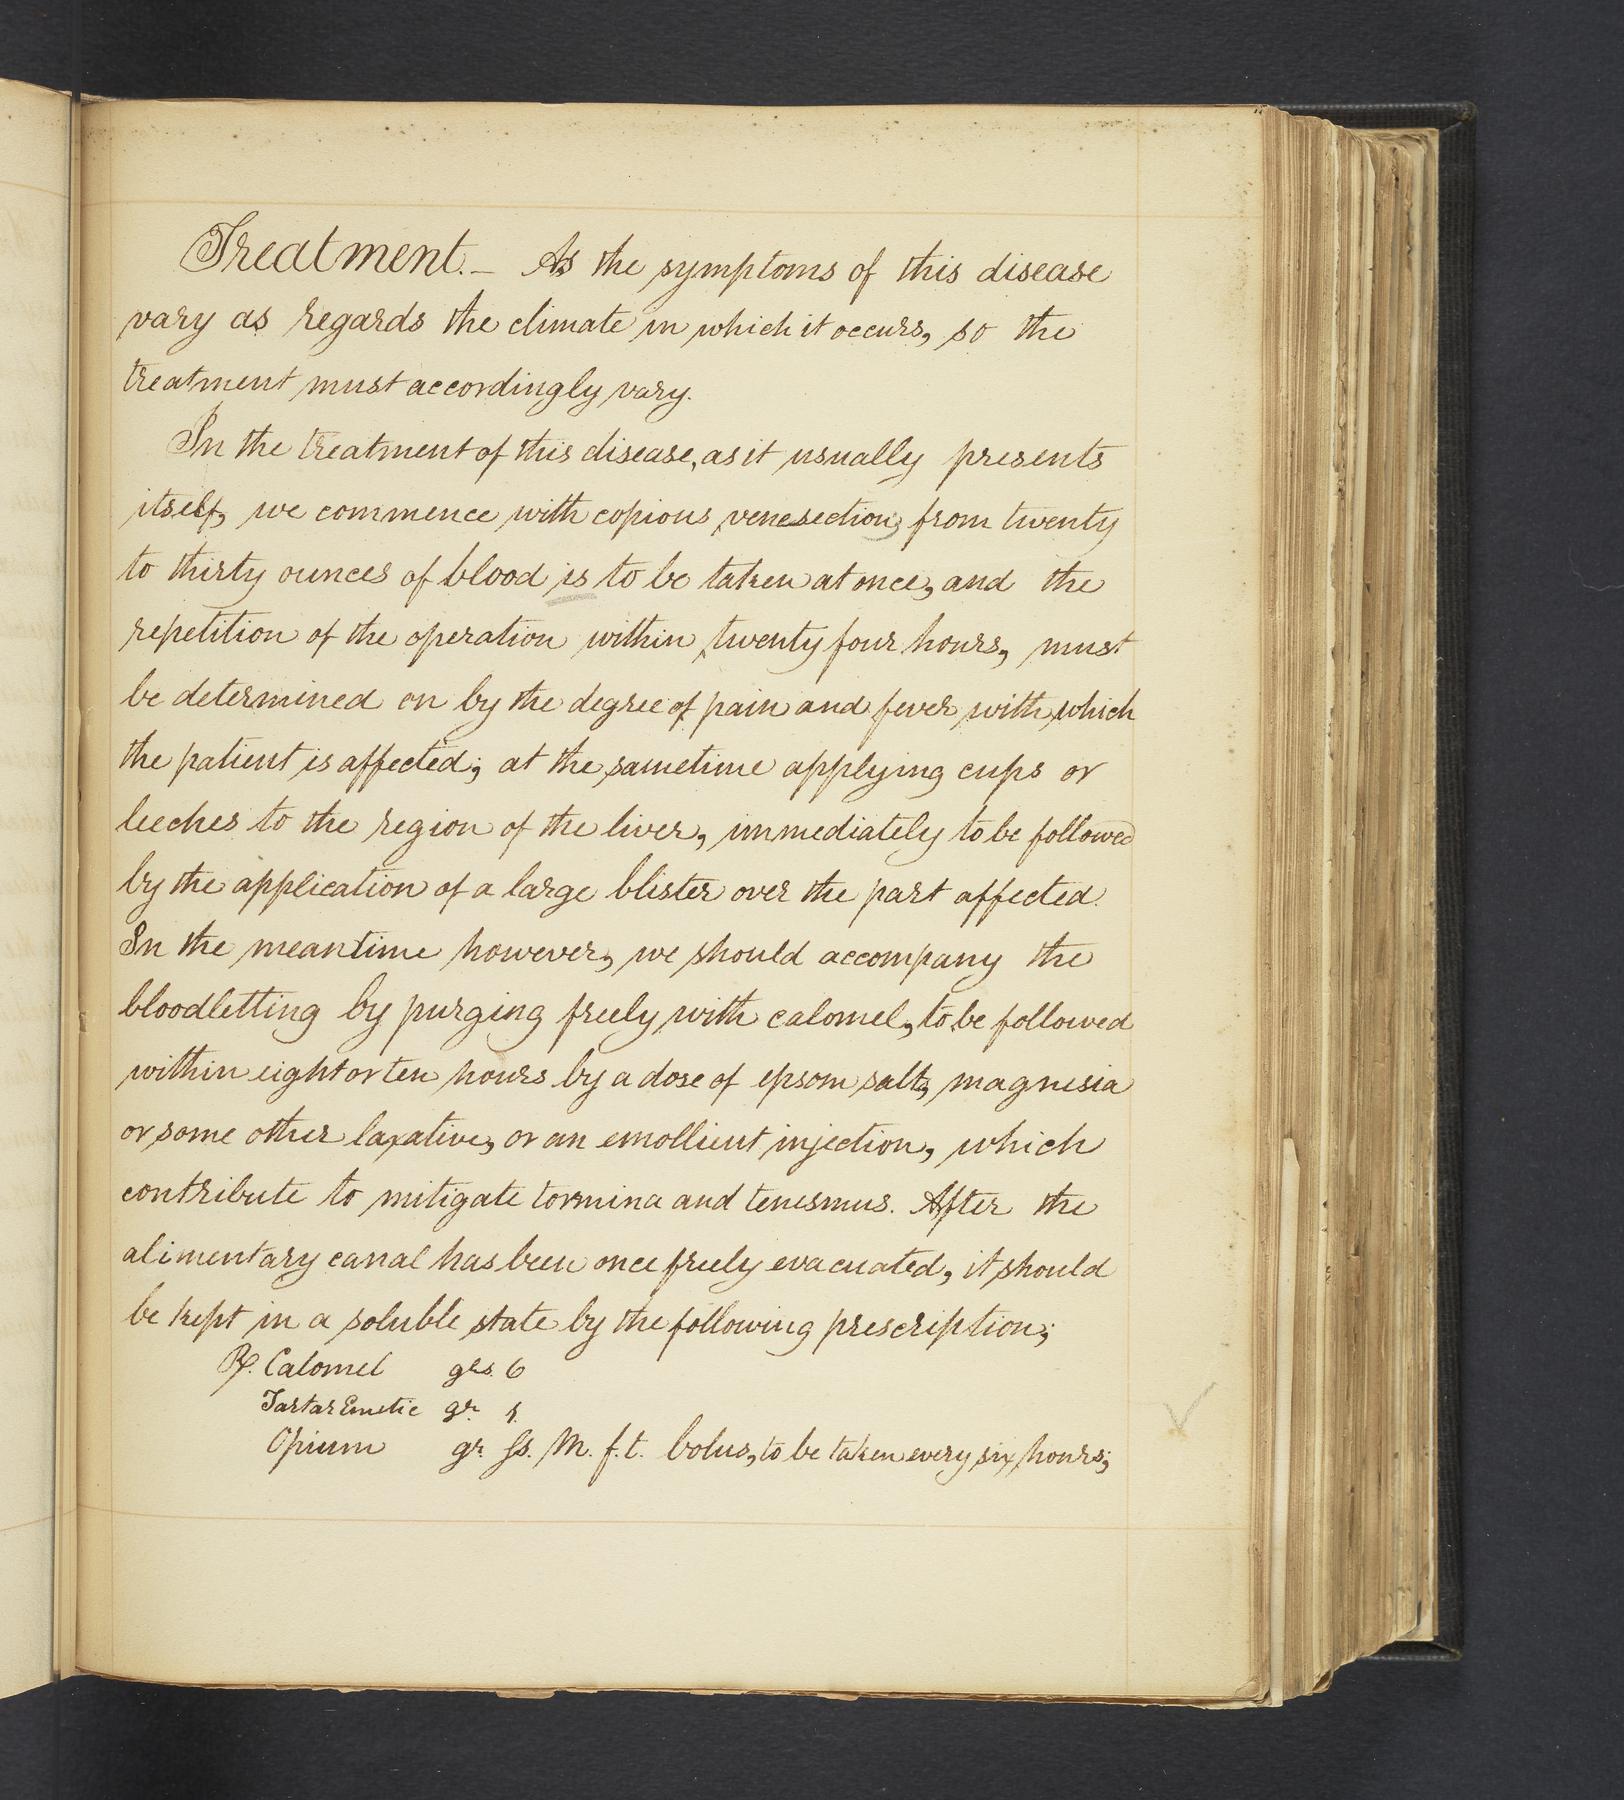 Treatment.– As the symptoms of this disease
vary as regards the climate in which it occurs, so the
treatment must accordingly vary.
In the treatment of this disease, as it usually presents
itself, we commence with copious venesection; from twenty
to thirty ounces of blood is to be taken at once, and the
repetition of the operation within twenty four hours, must
be determined on by the degree of pain and fever with which
the patient is affected; at the sametime applying cups or
leeches to the region of the liver, immediately to be followed
by the application of a large blister over the part affected.
In the meantime however, we should accompany the
bloodletting by purging freely with calomel, to be followed
within eight or ten hours by a dose of epsom salt, magnesia
or some other laxative, or an emollient injection, which
contribute to mitigate tormina and tenesmus. After the
alimentary canal has been once freely evacuated, it should
be kept in a soluble state by the following prescription;
℞. Calomel grs. 6
Tartar Emetic gr. 1.
Opium gr. ss. M. f.t. bolus, to be taken every six hours;